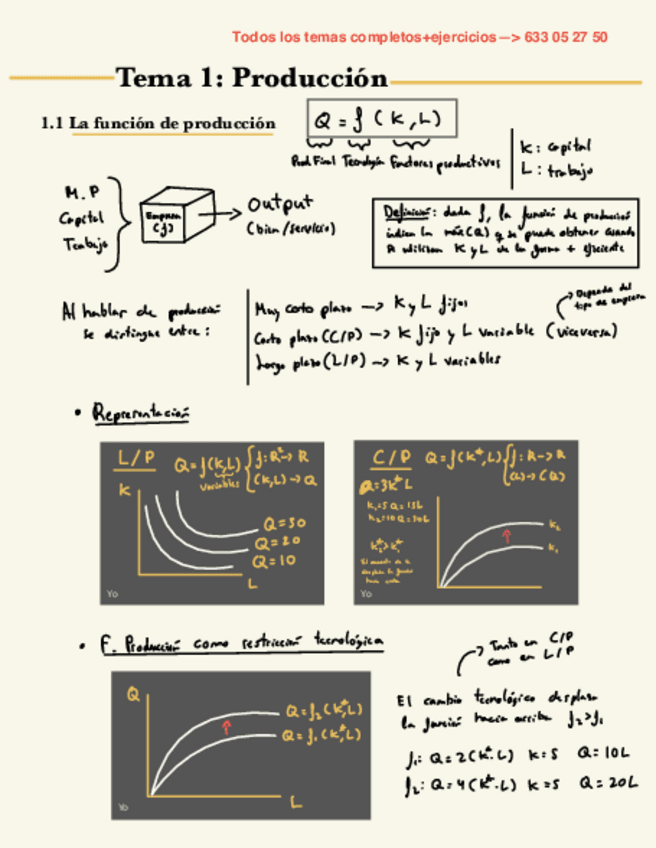 Todos los temas completos+ejercicios—> 633 05 27 50
Tema 1: Producción
1.1 La función de producción
Q = f (K, L)
Prod Final Tecnología Factores productivos
K: capital
L: trabajo
M.P
Capital
Trabajo
Empresa
(f)
Output
(bien/servicio)
Definición: dada f, la función de producción
indica la máx(Q) q se puede obtener cuando
se utilizan K y L de la forma + eficiente
Al hablar de producción
se distingue entre:
Muy corto plazo —> K y L fijos
Corto plazo (C/P) —> K fijo y L variable (viceversa)
Largo plazo (L/P) —> K y L variables
Depende del
tipo de empresa
• Representación
L/P
Q=f(K,L)
variables
f: R²-> R
(K,L) -> Q
K
Q=30
Q=20
Q=10
L
Yo
C/P
Q=f(K*,L)
f: R-> R
(L)->(Q)
Q=3K*L
K₁=5 Q=15L
K₂=10 Q=30L
K₂*>K₁*
El aumento de K
desplaza la función
hacia arriba
K₂
K₁
Yo
• F. Producción como restricción tecnológica
Q
Q=f₂(K*,L)
Q=f₁(K*,L)
L
Yo
Tanto en C/P
como en L/P
El cambio tecnológico desplaza
la función hacia arriba f₂>f₁
f₁: Q=2(K*·L) K=5 Q=10L
f₂: Q=4(K*·L) K=5 Q=20L